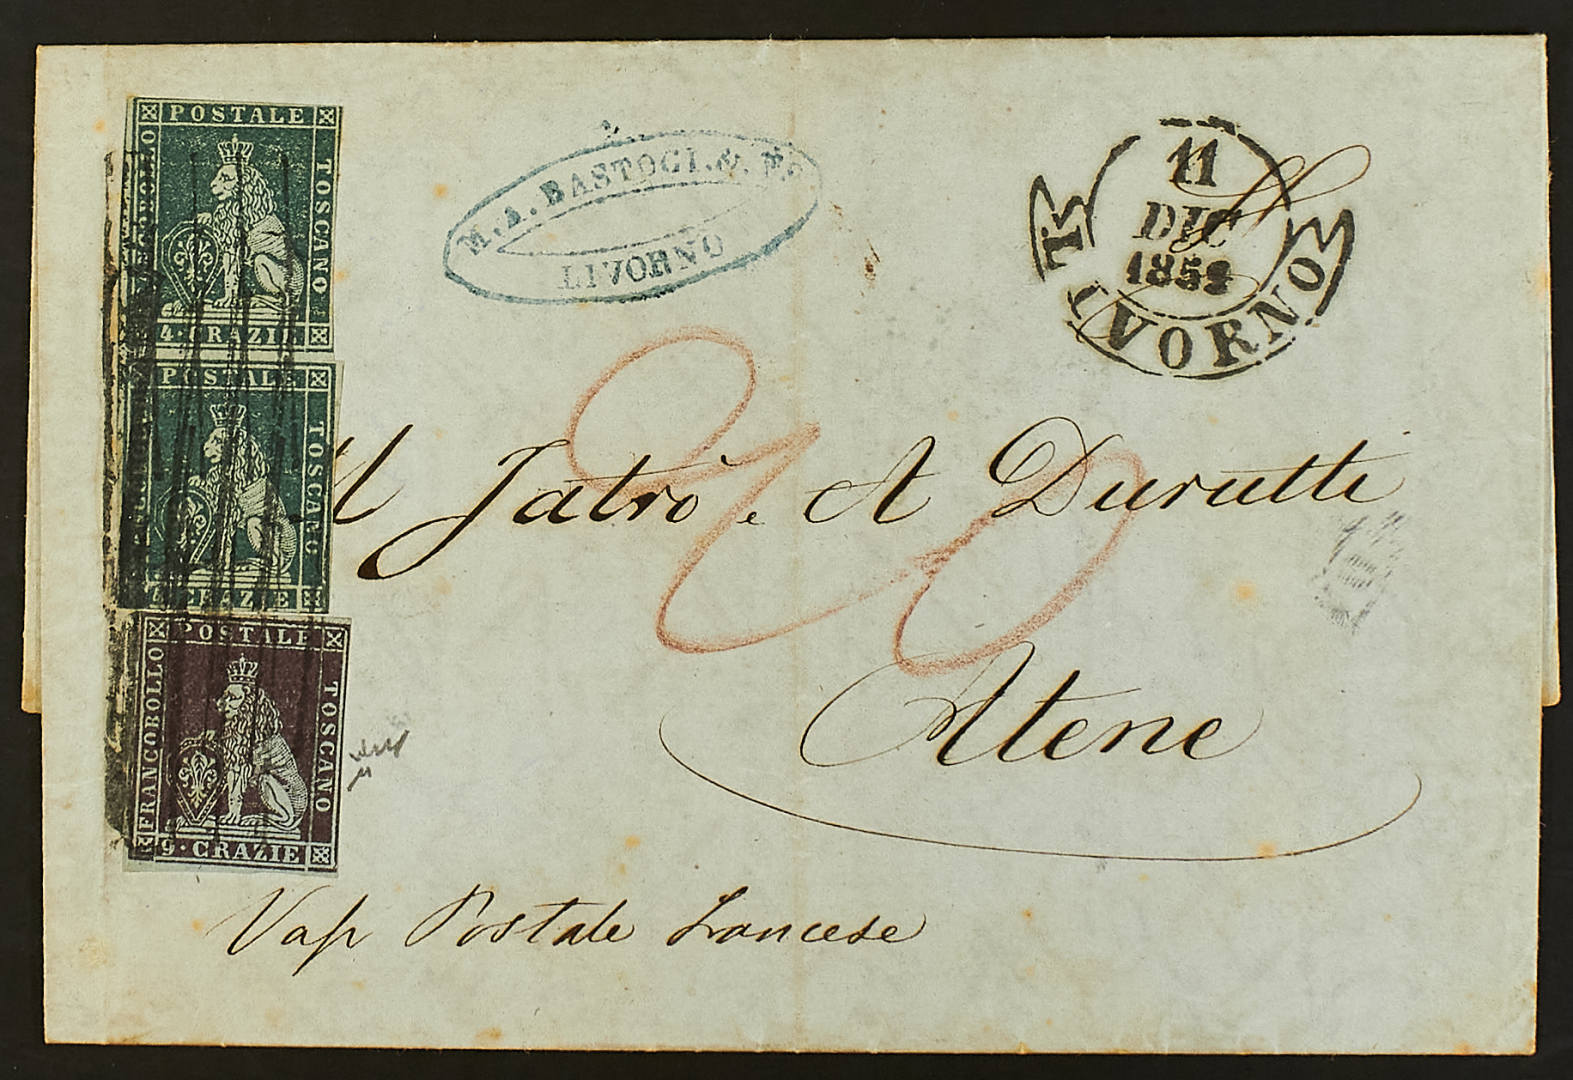 POSTALE
FRANCOBOLLO
TOSCANO
4·CRAZIE
POSTALE
TOSCANO
4·CRAZIE
POSTALE
FRANCOBOLLO
TOSCANO
9·CRAZIE
M. A. BASTOGI. &.
LIVORNO
11
DIC
LIVORNO
20
M Jatrò e A Durutti
Atene
Vap Postale Francese